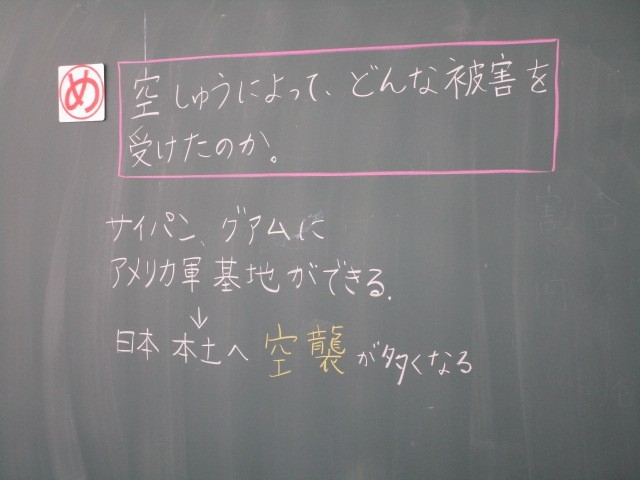 め
空しゅうによって、どんな被害を
受けたのか。
サイパン、グアムに
アメリカ軍基地ができる.
↓
日本本土へ空襲が多くなる